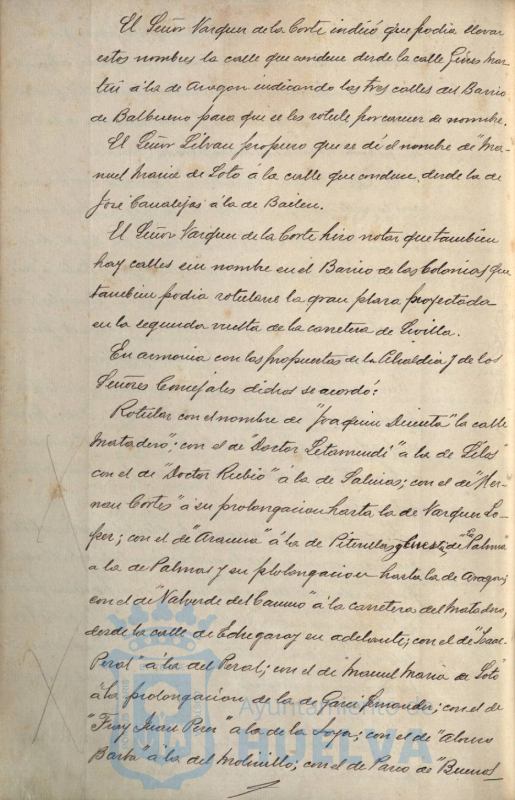 El Señor Vazquez de la Corte indicó que podia llevar
estos nombres la calle que conduce desde la calle Ginés Mar-
tín á la de Aragon indicando las tres calles del Barrio
de Balbueno para que se les rotule por carecer de nombre.
El Señor Silvan propuso que se dé el nombre de "Ma-
nuel Maria de Soto á la calle que conduce desde la de
José Canalejas á la de Bailen.
El Señor Vazquez de la Corte hizo notar que tambien
hay calles sin nombre en el Barrio de las Colonias y que
tambien podia rotularse la gran plaza proyectada
en la segunda vuelta de la carretera de Sevilla.
En armonia con las propuestas de la Alcaldia y de los
Señores Concejales dichos se acordó:
Rotular con el nombre de "Joaquin Dicenta" la calle
Matadero"; con el de "Doctor Letamendi" á la de "Silos"
con el de "Doctor Rubio" á la de Salinas; con el de "Her-
nan Cortés" á su prolongacion hasta la de Vazquez Lo-
pez; con el de "Aracena" á la de Pitorillas de "La Palma"
a la de Palmas y su prolongacion hasta la de Aragon;
con el de "Valverde del Camino" á la carretera del Matadero,
desde la calle de Echegaray en adelante; con el de "Isaac
Peral" á la del Peral; con el de Manuel Maria de Soto"
á la prolongacion de la de Garci Fernandez; con el de
"Fray Juan Perez" á la de la Soya; con el de "Alonso
Barba" á la del Molinillo; con el de Paseo de "Buenos
Ayuntamiento de
HUELVA